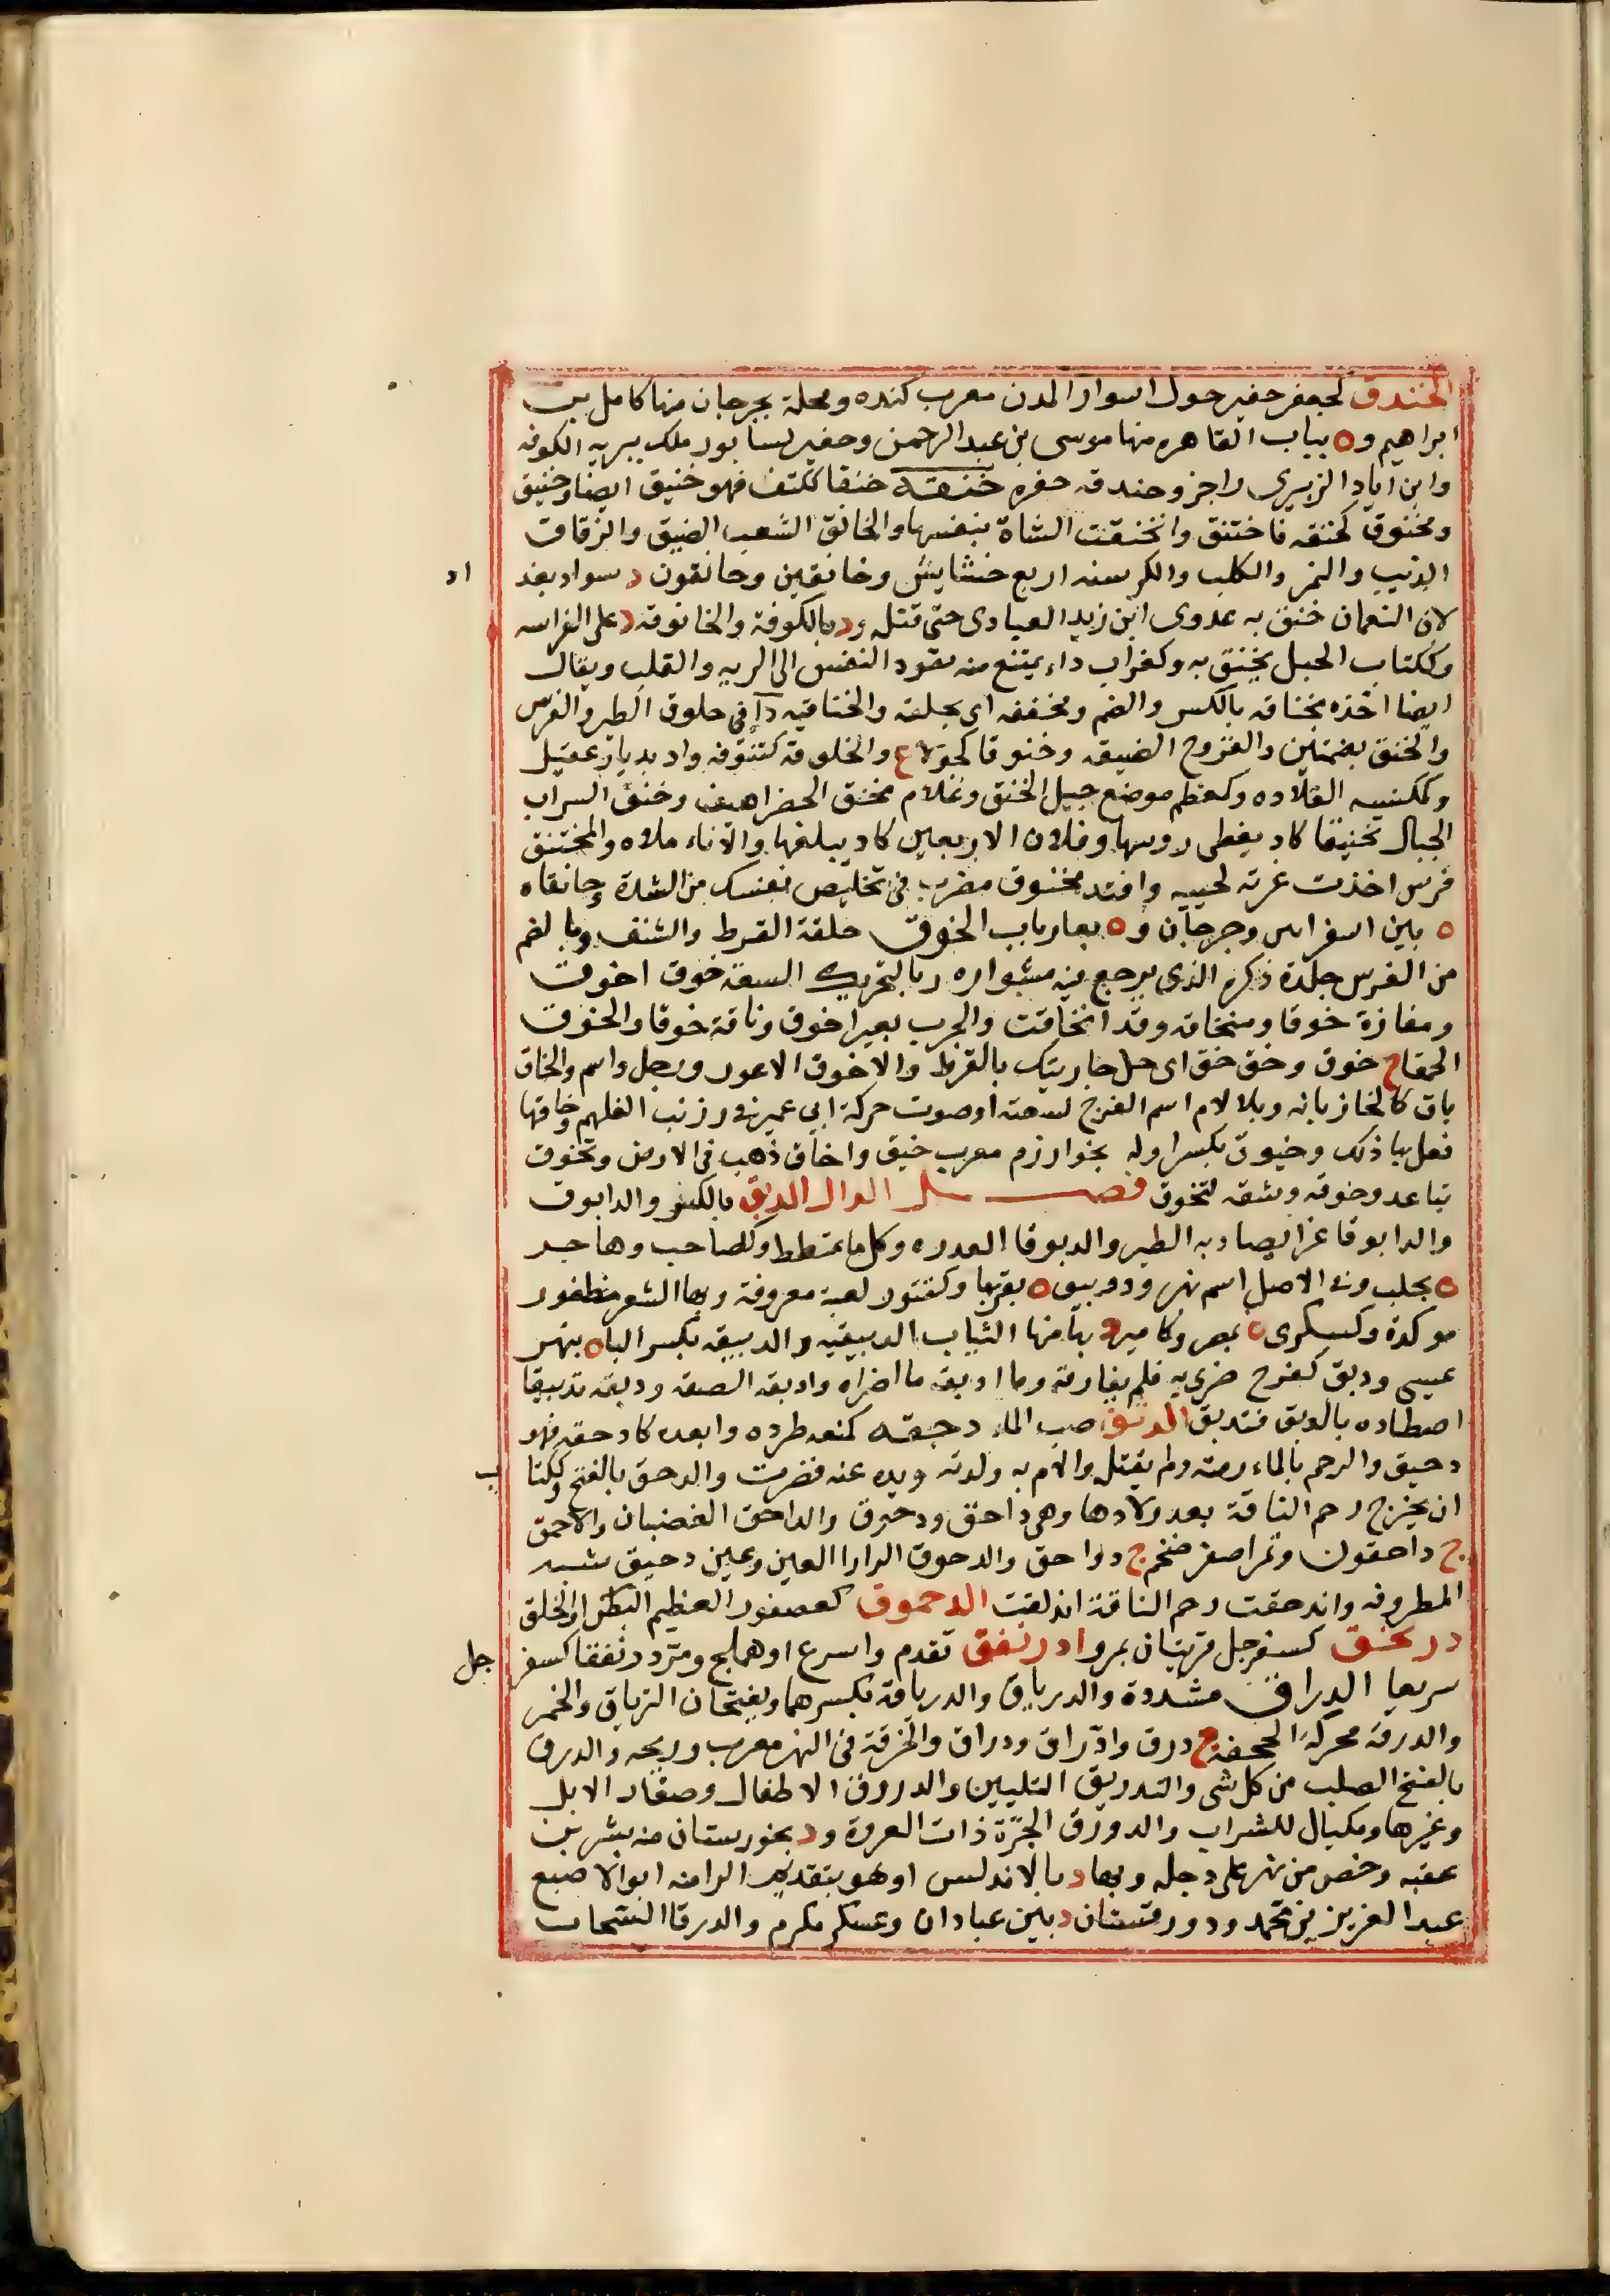 الخندق كجعفر حفير حول اسوار المدن معرب كنده ومحلة بجرجان منها كامل بن
ابراهيم وه بباب القاهره منها موسى بن عبد الرحمن وحفير لسابور ملك ببريه الكوفه
وابن اياد الزبيرى راجز وخندقه حفره خنقه خنقا ككتف فهو خنيق ايضا وخنيق
ومخنوق كخنقه فاختنق وانخنقت الشاة بنفسها والخانق الشعب الضيق والزقاق
الذيب والنمر والكلب والكرسنه اربع حشايش وخانقين وخانقون د سواد بغد
اد
لان النعمان خنق به عدوى ابن زيد العبادى حتى قتله ود بالكوفة والخانوقه د على الفراسه
وككتاب الحبل يخنق به وكغراب داء يمتنع منه نفود النفس الى الريه والقلب ويقال
ايضا اخذه بخناقه بالكسر والضم ومخنقه اى بحلقه والخناقيه دآ فى حلوق الطير والفرس
والخنق بضمتين والفروج الضيقه وخنوقا كجولاء ع والخلوقة كتنوفه واد بديار عقيل
وككنسه القلاده وكعظم موضع حبل الخنق وغلام مخنق الخضر اهيف وخنق السراب
الجبال تخنيقا كاد يغطى روسها وفلان الاربعين كاد يبلغها والاناء ملاه والمختنق
فرس اخذت غرته لحييه وافتد مخنوق مضرب فى تخليص نفسك من الشدة وخانقاه
ه بين اسفراين وجرجان وه بفارياب الخوق حلقة القرط والشنف وبالضم
من الفرس جلدة ذكره الذى يرجع فيه مشواره وبالتحريك السعة خوق اخوق
ومفازة خوقا ومنخاقه وقد انخاقت والجرب بعير اخوق وناقة خوقا والخوق
الحمقا ج خوق وخق خق اى حل جاريتك بالقرط والاخوق الاعور ورجل واسم والخاق
باق كالخازبانه وبلا لام اسم الفرج لسعته او صوت حركة ابى عمير فى زرنب الفلهم وخاقها
فعل بها ذلك وخيوق بكسر اوله بخوارزم معرب خيق واخاق ذهب فى الارض وتخوق
تباعد وخوقه وشقه لتخوق فصـــل الدال الدبق بالكسر والدابوق
والدابوقا غرا يصاد به الطير والدبوقا العدره وكل ما تمطط وكصاحب وهاجر
ه بحلب وفى الاصل اسم نهر ودويبق ه بقربها وكتنور لعبة معروفة وبها الشعر مظفور
موكدة وكسكرى ه بمصر وكامير د بها منها الثياب الدبيقيه والدبيقه بكسر البا ه بنهر
عيسى ودبق كفرح ضرى به فلم يفارقه وما ادبقه ما اضراه وادبقه الصقه ودبقه تدبيقا
اصطاده بالدبق فتدبق الدثق صب الماء دحقه كمنعه طرده وابعده كادحقه فهو
دحيق والرحم بالماء رمته ولم يقتله والام به ولدته ويده عنه قصرت والدحق بالفتح وككتا
ب
ان يخرج رحم الناقة بعد ولادها وهى داحق ودحوق والداحق الغضبان والاحمق
ج داحقون وتمر اصفر ضخم ج دواحق والدحوق الرارا العين وعين دحيق شبه
المطروفه واندحقت رحم الناقة اندلقت الدحموق كعصفور العظيم البطن او الخلق
درحنق كسفرجل قريتان بمرو ادرنفق تقدم واسرع او هملج ومر درنفقا كسفر
جل
سريعا الدراق مشددة والدرياق والدرياقة بكسرهما ويفتحان الترياق والخمر
والدرقة محركة الحجفة ج درق وادراق ودراق والخرقة فى النهر معرب وريحه والدرق
بالفتح الصلب من كل شى والتدريق التليين والدردق الاطفال وصغار الابل
وغيرها ومكيال للشراب والدورق الجرّة ذات العروة ود بخورستان منه بشر بن
عقبه وحصن من نهر على دجله وبها د بالاندلس او هو بتقديم الرا منه ابو الاصبع
عبد العزيز بن محمد ودورقستان د بين عبادان وعسكر مكرم والدرقا السحاب